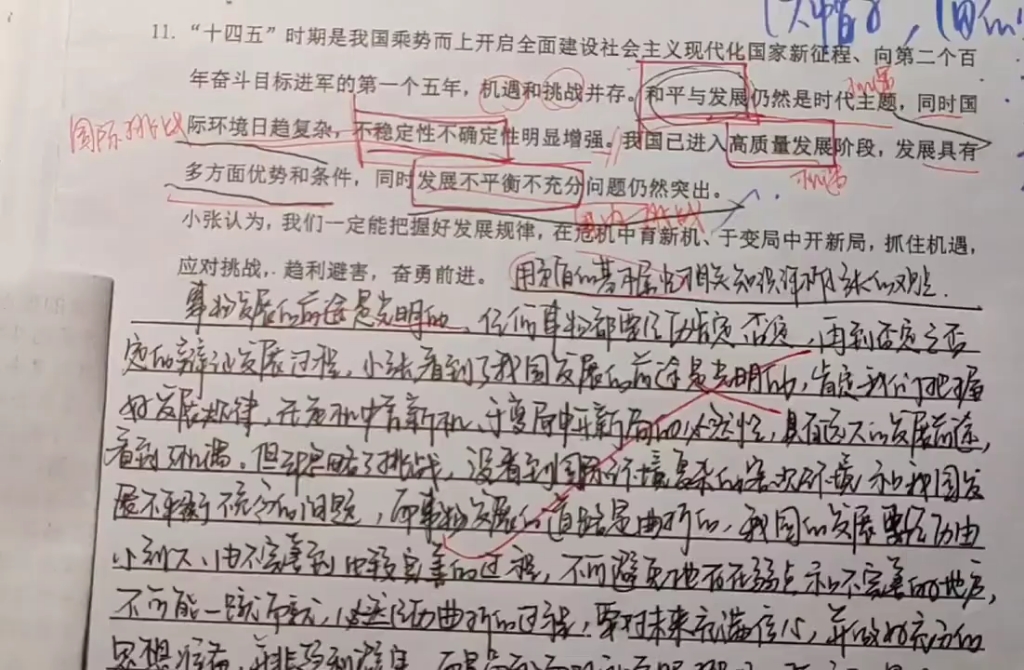 11. “十四五”时期是我国乘势而上开启全面建设社会主义现代化国家新征程、向第二个百
年奋斗目标进军的第一个五年，机遇和挑战并存。和平与发展仍然是时代主题，同时国
机遇
国际挑战
际环境日趋复杂，不稳定性不确定性明显增强。我国已进入高质量发展阶段，发展具有
机遇
多方面优势和条件，同时发展不平衡不充分问题仍然突出。
国内挑战
小张认为，我们一定能把握好发展规律，在危机中育新机、于变局中开新局，抓住机遇，
应对挑战，趋利避害，奋勇前进。
事物发展的前途是光明的，任何事物都要经历肯定 否定，再到否定之否
定的辩证发展过程，小张看到了我国发展的前途是光明的，肯定我们把握
好发展规律，在危机中育新机、于变局中开新局的必然性，具有远大的发展前途，
看到机遇。但却忽略了挑战，没看到国际环境复杂的客观环境和我国发
展不平衡不充分的问题，而事物发展的道路是曲折的，我国的发展要经历由
小到大、由不完善到比较完善的过程，不可避免地存在弱点和不完善的地方，
不可能一蹴而就，必然经历曲折的过程，要对未来充满信心，并做好充分的
思想准备，